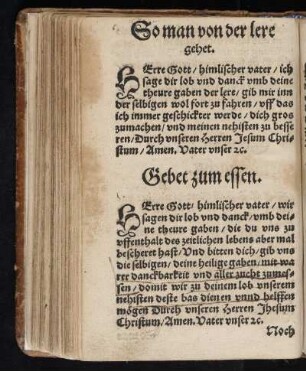 So man von der lere
gehet.
HErre Gott / himlischer vater / ich
sage dir lob vnd danck vmb deine
theure gaben der lere / gib mir inn
der selbigen wol fort zu fahren / vff das
ich immer geschickter werde / dich gros
zumachen / vnd meinen nehisten zu besse
ren / Durch vnseren Herren Jesum Chri-
stum / Amen. Vater vnser ꝛc.
Gebet zum essen.
HErre Gott / himlischer vater / wir
sagen dir lob vnd danck / vmb dei-
ne theure gaben / die du vns zu
vffenthalt des zeitlichen lebens aber mal
bescheret hast / Vnd bitten dich / gib vns
die selbigen / deine heilige gaben / mit wa
rer danckbarkeit vnd aller zucht zumes-
sen / domit wir zu deinem lob vnserem
nehisten deste bas dienen vnnd helffen
mögen Durch vnseren Herren Jhesum
Christum / Amen. Vater vnser ꝛc.
Noch